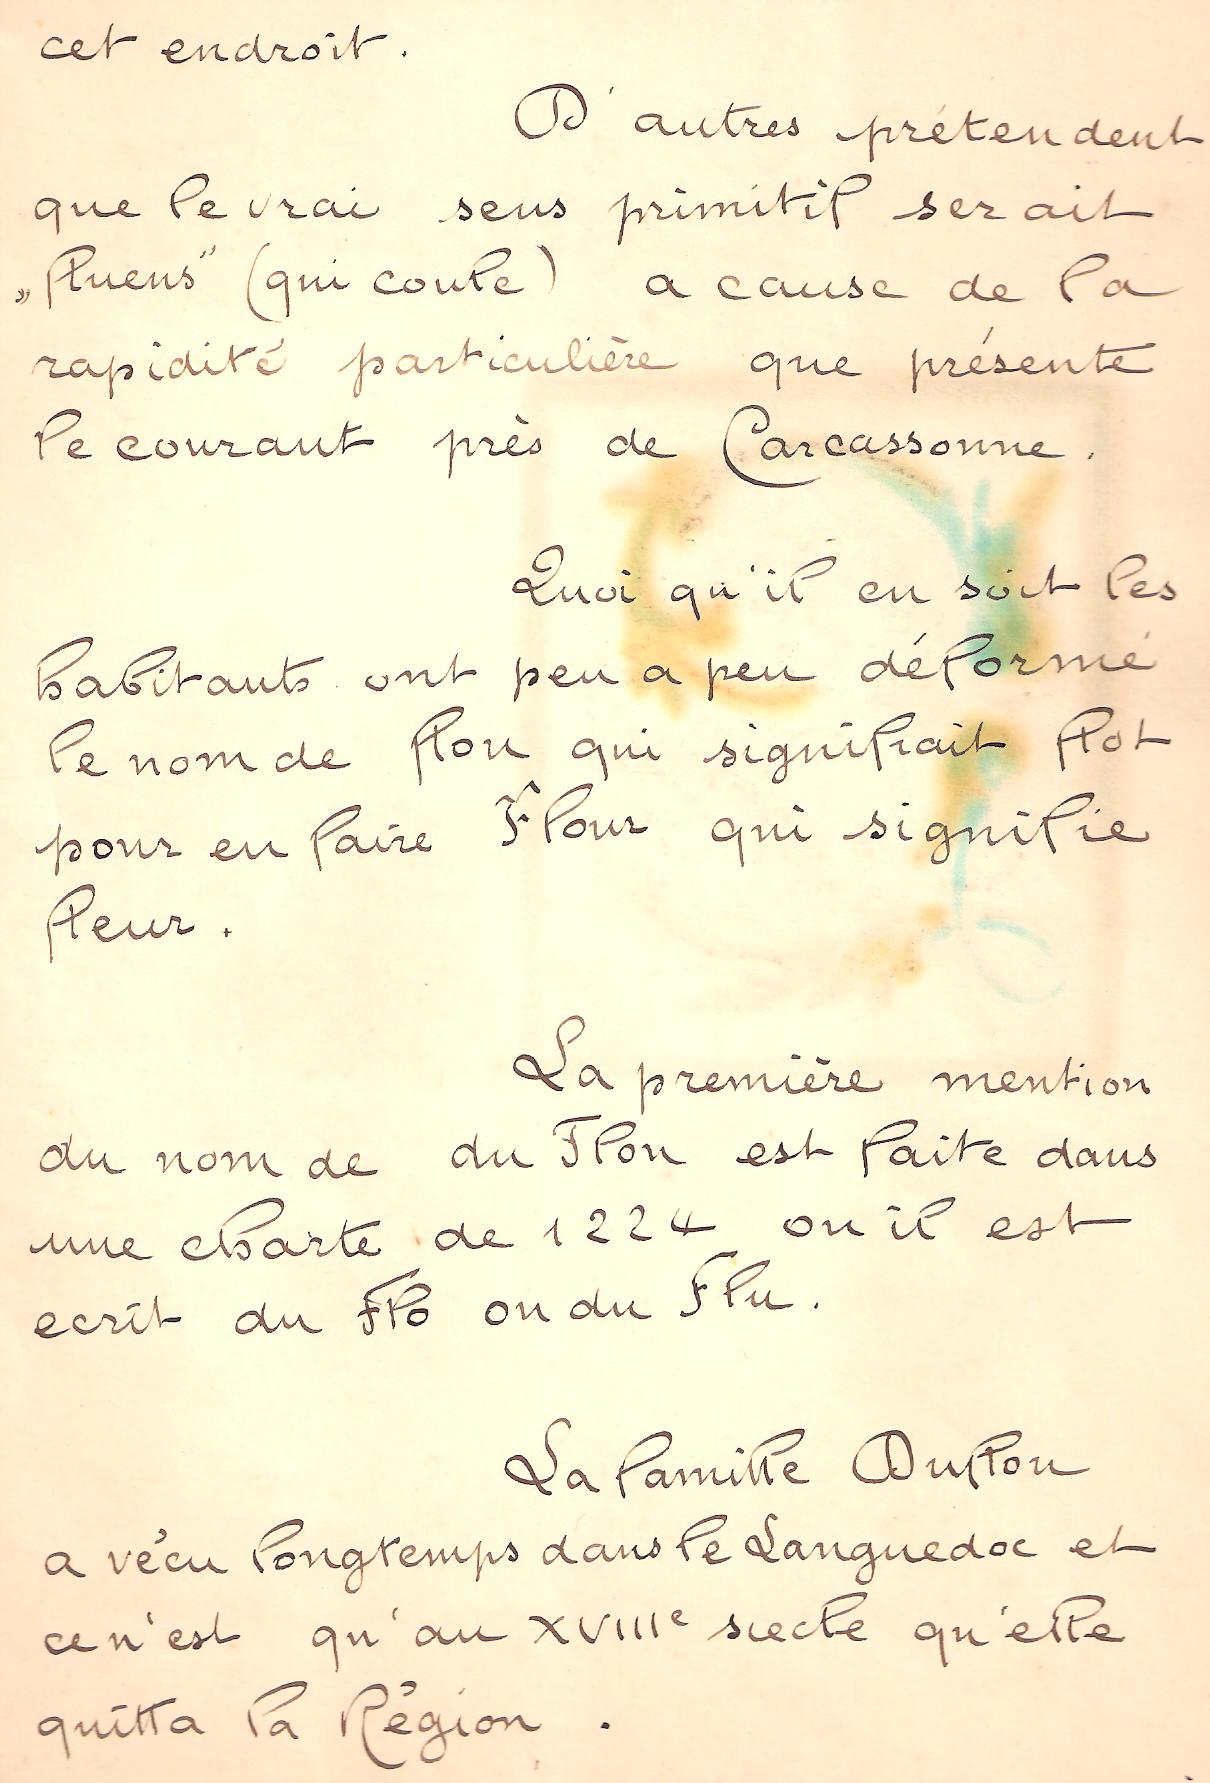 cet endroit.
D'autres prétendent
que le vrai sens primitif serait
„fluens" (qui coule) a cause de la
rapidité particulière que présente
le courant près de Carcassonne.
Quoi qu'il en soit les
habitants ont peu a peu déformé
le nom de flou qui signifiait flot
pour en faire Flour qui signifie
fleur.
La première mention
du nom de du Flou est faite dans
une charte de 1224 ou il est
ecrit du Flo ou du Flu.
La famille Duflou
a vécu longtemps dans le Languedoc et
ce n'est qu'au XVIIIe siecle qu'elle
quitta la Région.